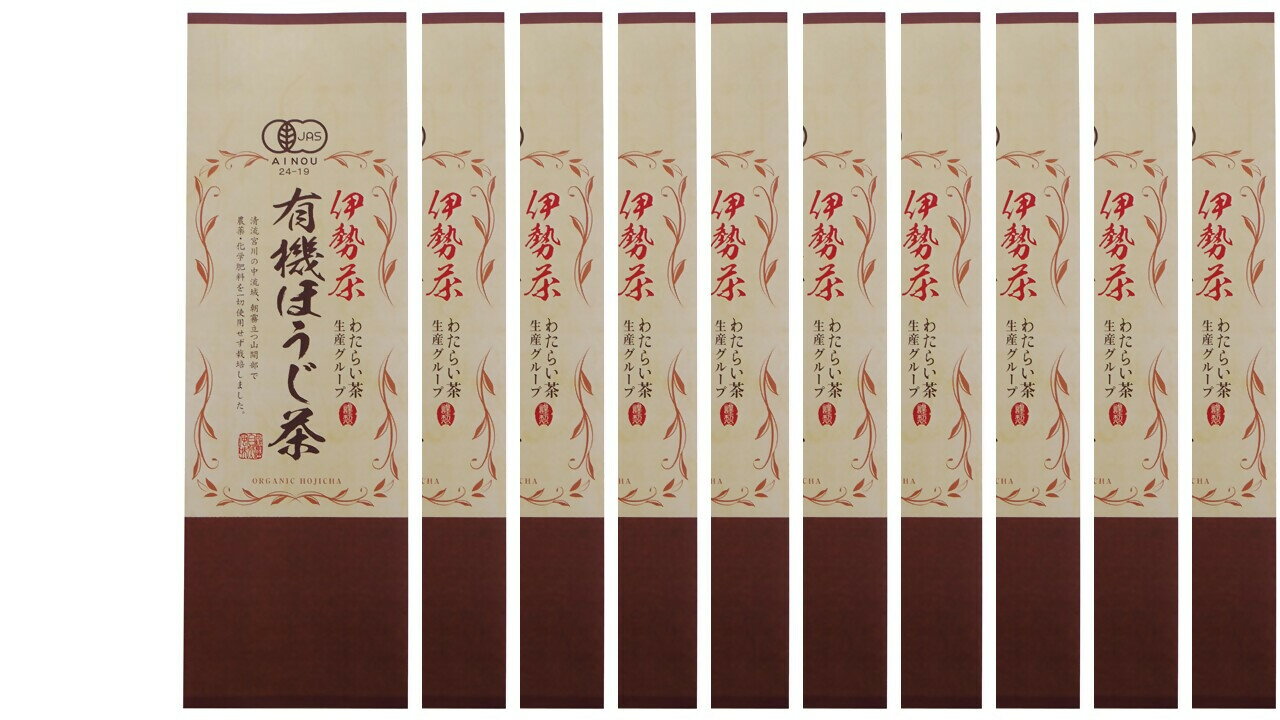 JAS
AINOU
24-19
伊勢茶
わたらい茶
生産グループ
謹製
有機ほうじ茶
清流宮川の中流域、朝霧立つ山間部で
農薬・化学肥料を一切使用せず栽培しました。
ORGANIC HOJICHA
伊勢茶
わたらい茶
生産グループ
謹製
CHA
伊勢茶
わたらい茶
生産グループ
謹製
ICHA
伊勢茶
わたらい茶
生産グループ
謹製
HA
伊勢茶
わたらい茶
生産グループ
謹製
HA
伊勢茶
わたらい茶
生産グループ
謹製
ICHA
伊勢茶
わたらい茶
生産グループ
謹製
CHA
伊勢茶
わたらい茶
生産グループ
謹製
CHA
伊勢茶
わたらい茶
生産グループ
謹製
CHA
伊勢茶
わたらい茶
生産グループ
謹製
ICHA